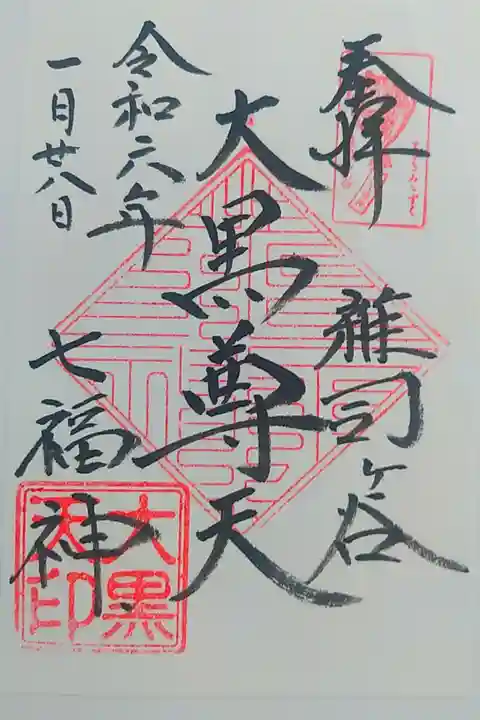 奉拝
雑司ヶ谷
大黒尊天
令和六年
一月廿八日
七福神
大黒
天印